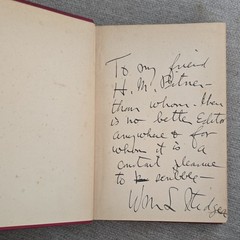 To my friend
H. M. Bitner —
than whom then
is no better Editor
anywhere & for
whom it is a
constant pleasure
to scribble —
Wm L Stidger